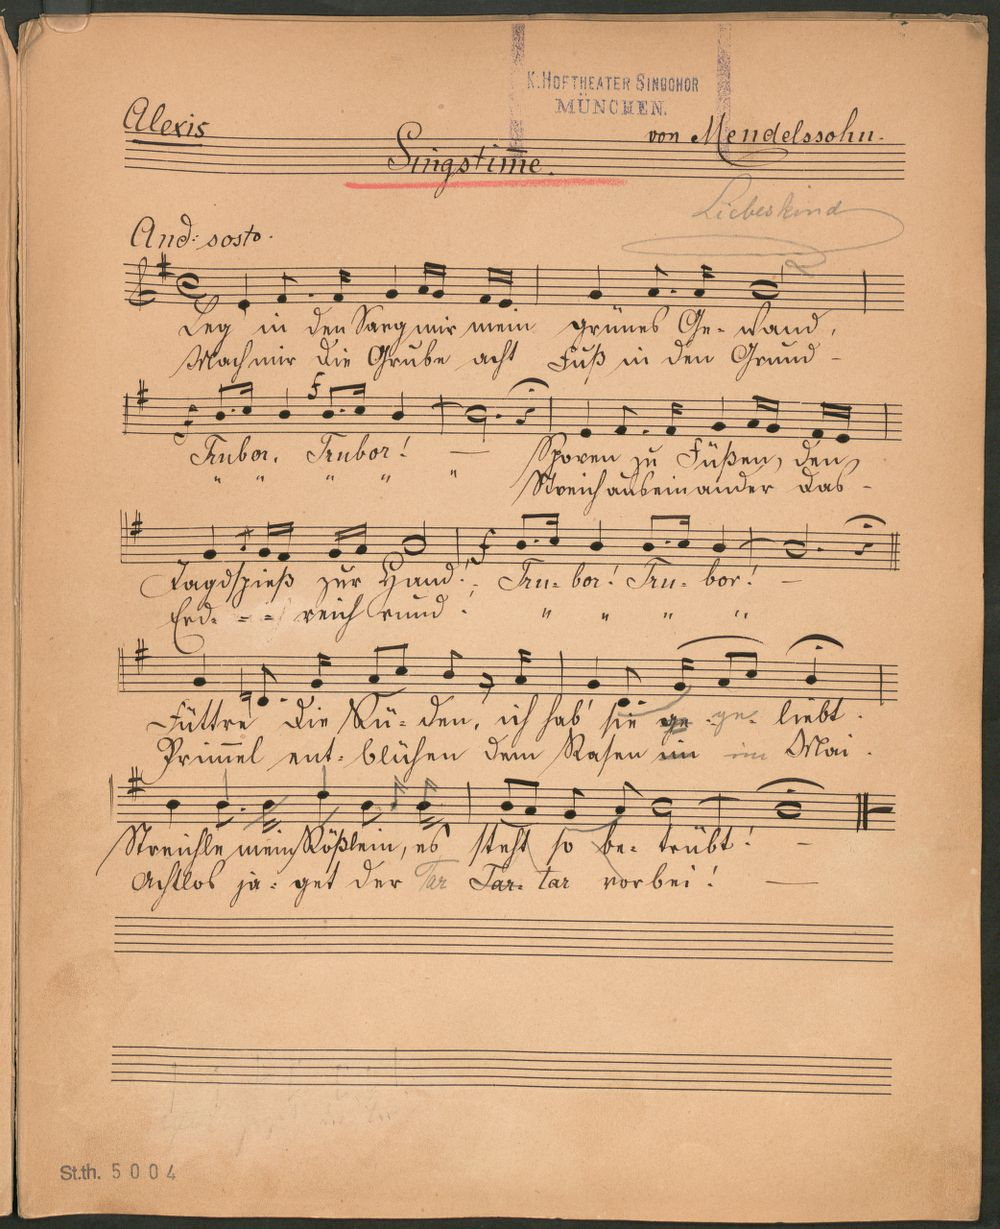 K. HOFTHEATER SINGCHOR
MÜNCHEN.
Alexis
von Mendelssohn.
Singstime.
Liebeskind
And: sosto.
Leg in den Sarg mir mein grünes Ge- wand,
Mach mir die Grube acht Fuß in den Grund -
f
Trubor, Trubor! — Sporen zu Füßen, den
" " " " " Streich auseinander das -
f
Jagdspieß zur Hand! - Tru- bor! Tru- bor! -
Erd- - - reich rund! " " " "
Füttre die Rü- den, ich hab' sie ge- ge- liebt.
Primel ent- blühen dem Rasen im im Mai.
Streichle mein Rößlein, es steht so be- trübt! -
Achtlos ja- get der Tar Tar- tar vorbei! —
St.th. 5004